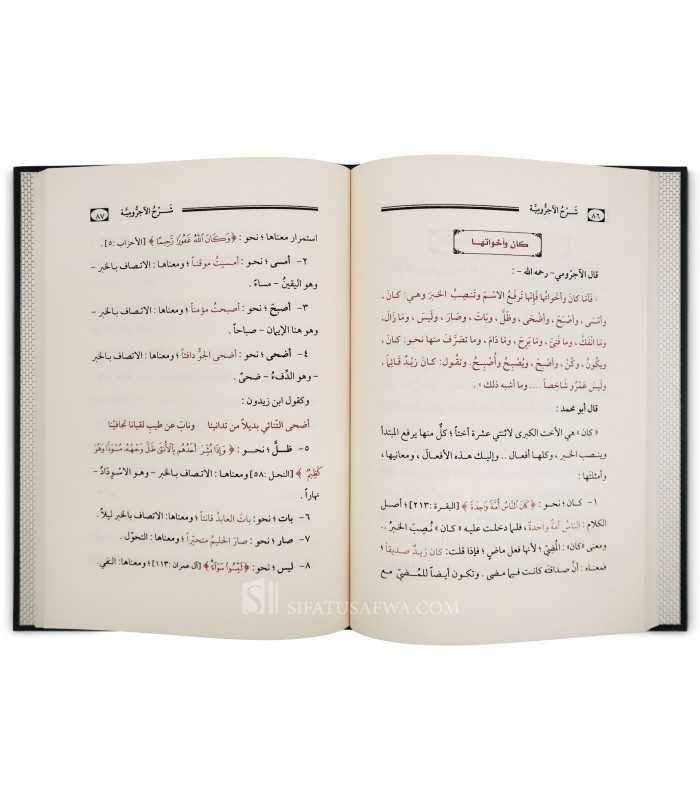 شَرْحُ الآجُرُّومِيَّة
٨٦
كان وأخواتها
قال الآجرُّومي - رحمه الله - :
« فأمَّا كانَ وأخواتُها فإنَّها تَرفَعُ الاسْمَ وتَنصِبُ الخبرَ وهي: كانَ ،
وأَمْسَى ، وأَصْبَحَ ، وأَضْحَى ، وظَلَّ ، وبَاتَ ، وصَارَ ، ولَيْسَ ، ومَا زَالَ،
ومَا انْفَكَّ ، وما فَتِئَ ، ومَا بَرِحَ ، ومَا دَامَ ، وما تَصَرَّفَ منها نحو: كانَ ،
ويكُونُ ، وكُنْ ، وأصْبَحَ ، ويُصْبِحُ وأَصْبِحْ. وتقول: كانَ زيدٌ قَائِماً ،
وليس عَمْرٌو شاخِصاً .... وما أشبه ذلك » .
قال أبو محمد :
« كان » هي الأخت الكبرى لاثنتي عشرة أختاً ؛ كلٌّ منها يرفع المبتدأ
وينصب الخبر ، وكلها أفعال .. وإليك هذه الأفعالَ ، ومعانيها ،
وأمثلتَها :
١- كان ؛ نحو : ﴿ كَانَ النَّاسُ أُمَّةً وَاحِدَةً ﴾ [البقرة :٢١٣] ؛ أصل
الكلام : الناسُ أمةٌ واحدةٌ ، فلما دخلت عليه « كان » نُصِبَ الخبرُ ..
ومعنى «كان» : المُضِيُّ ؛ لأنها فعل ماضٍ ؛ فإذا قلت: كان زيدٌ صديقاً ؛
فمعناه : أن صداقتَه كانت فيما مضى . وتكون أيضاً للمُضيِّ مع
شَرْحُ الآجُرُّومِيَّة
٨٧
استمرار معناها ؛ نحو : ﴿وَكَانَ اللَّهُ غَفُورًا رَّحِيمًا ﴾ [الأحزاب :٥] .
٢- أمسى ؛ نحو : أمسيتُ موقناً ؛ ومعناها : الاتصاف بالخبر -
وهو اليقينُ - مساءً .
٣- أصبحَ ؛ نحو : أصبحتُ مؤمناً ؛ ومعناها : الاتصاف بالخبر -
وهو هنا الإيمان - صباحاً .
٤- أضحى ؛ نحو : أضحى الجوُّ دافئاً ؛ ومعناها : الاتصاف بالخبر
- وهو الدِّفءُ - ضحىً .
وكقول ابن زيدون :
أضحى التَّنائي بديلاً من تدانينا ونابَ عن طيبِ لقيانا تجافينا
٥- ظـلَّ ؛ نحـو : ﴿ وَإِذَا بُشِّرَ أَحَدُهُم بِالْأُنثَىٰ ظَلَّ وَجْهُهُ مُسْوَدًّا وَهُوَ
كَظِيمٌ ﴾ [النحل :٥٨] ومعناها : الاتصاف بالخبر - وهو الاسْوِدَادُ -
نهاراً .
٦- بات ؛ نحو: باتَ العابدُ قانتاً ؛ ومعناها: الاتصاف بالخبر ليلاً .
٧- صار ؛ نحو : صارَ الحليمُ متحيراً ؛ ومعناها : التحوّل .
٨- ليس ؛ نحو : ﴿لَيْسُوا سَوَاءً ﴾ [آل عمران :١١٣] ؛ ومعناها: النفي.
SIFATUSAFWA.COM